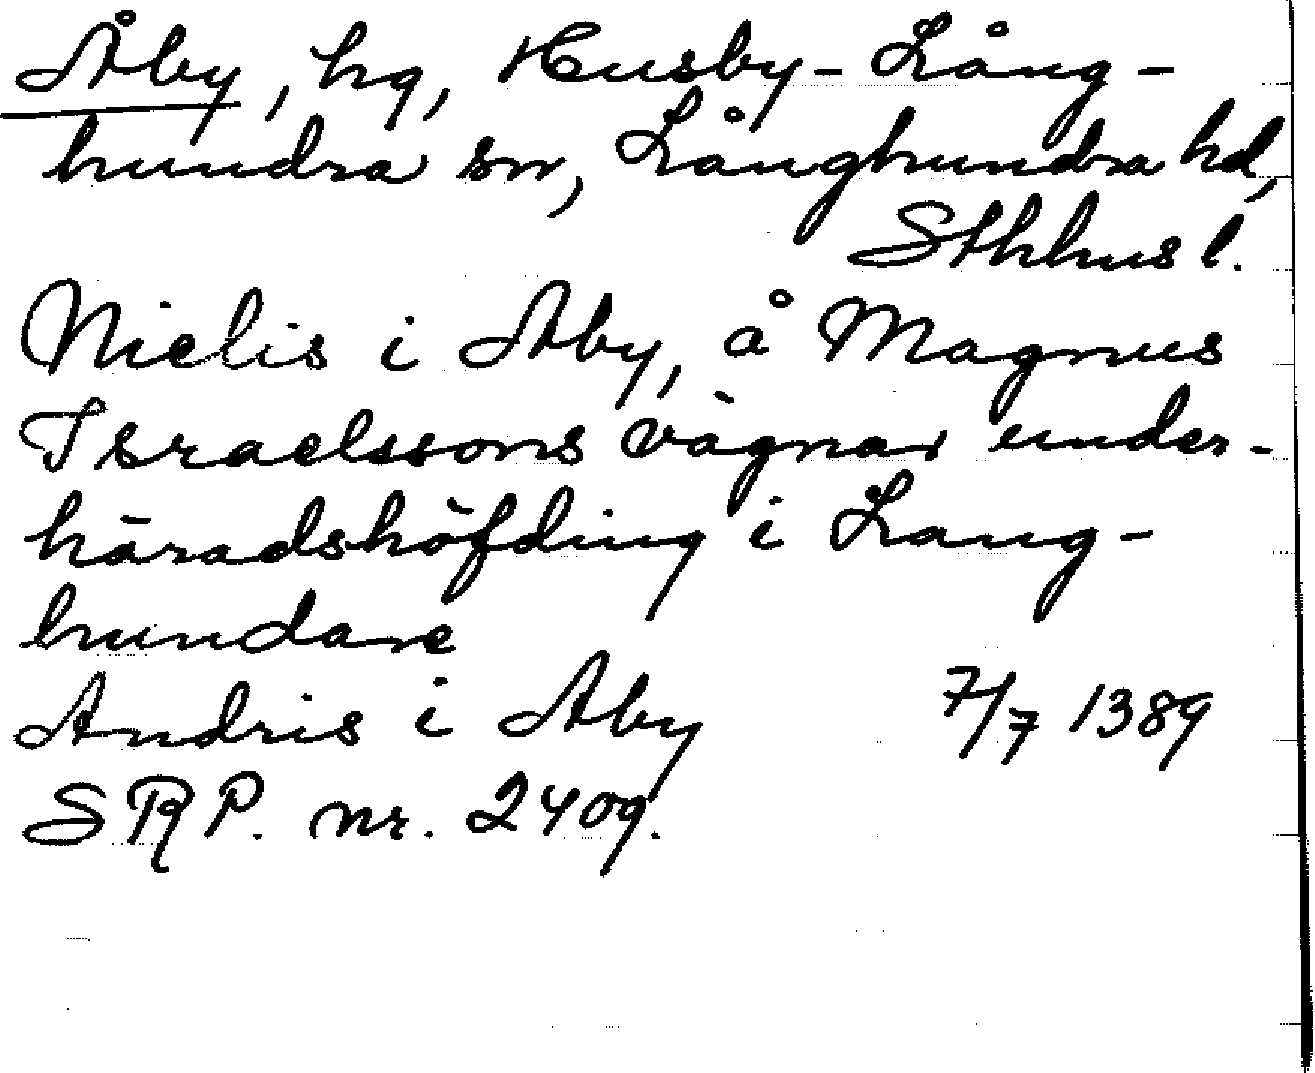 Åby, hg, Husby-Lång-
hundra sn, Långhundra hd,
Sthhus l.
Nielis i Aby, å Magnus
Israelssons vägnar under-
häradshöfding i Lang-
hundare
Andris i Aby 7/7 1389
SRP. nr. 2409.